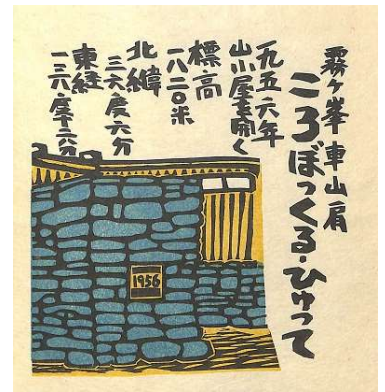 霧ヶ峯車山肩
ころぼっくる・ひゅって
一九五六年
山小屋を開く
標高
一八二〇米
北緯
三六度六分
東経
一三八度十六分
1956